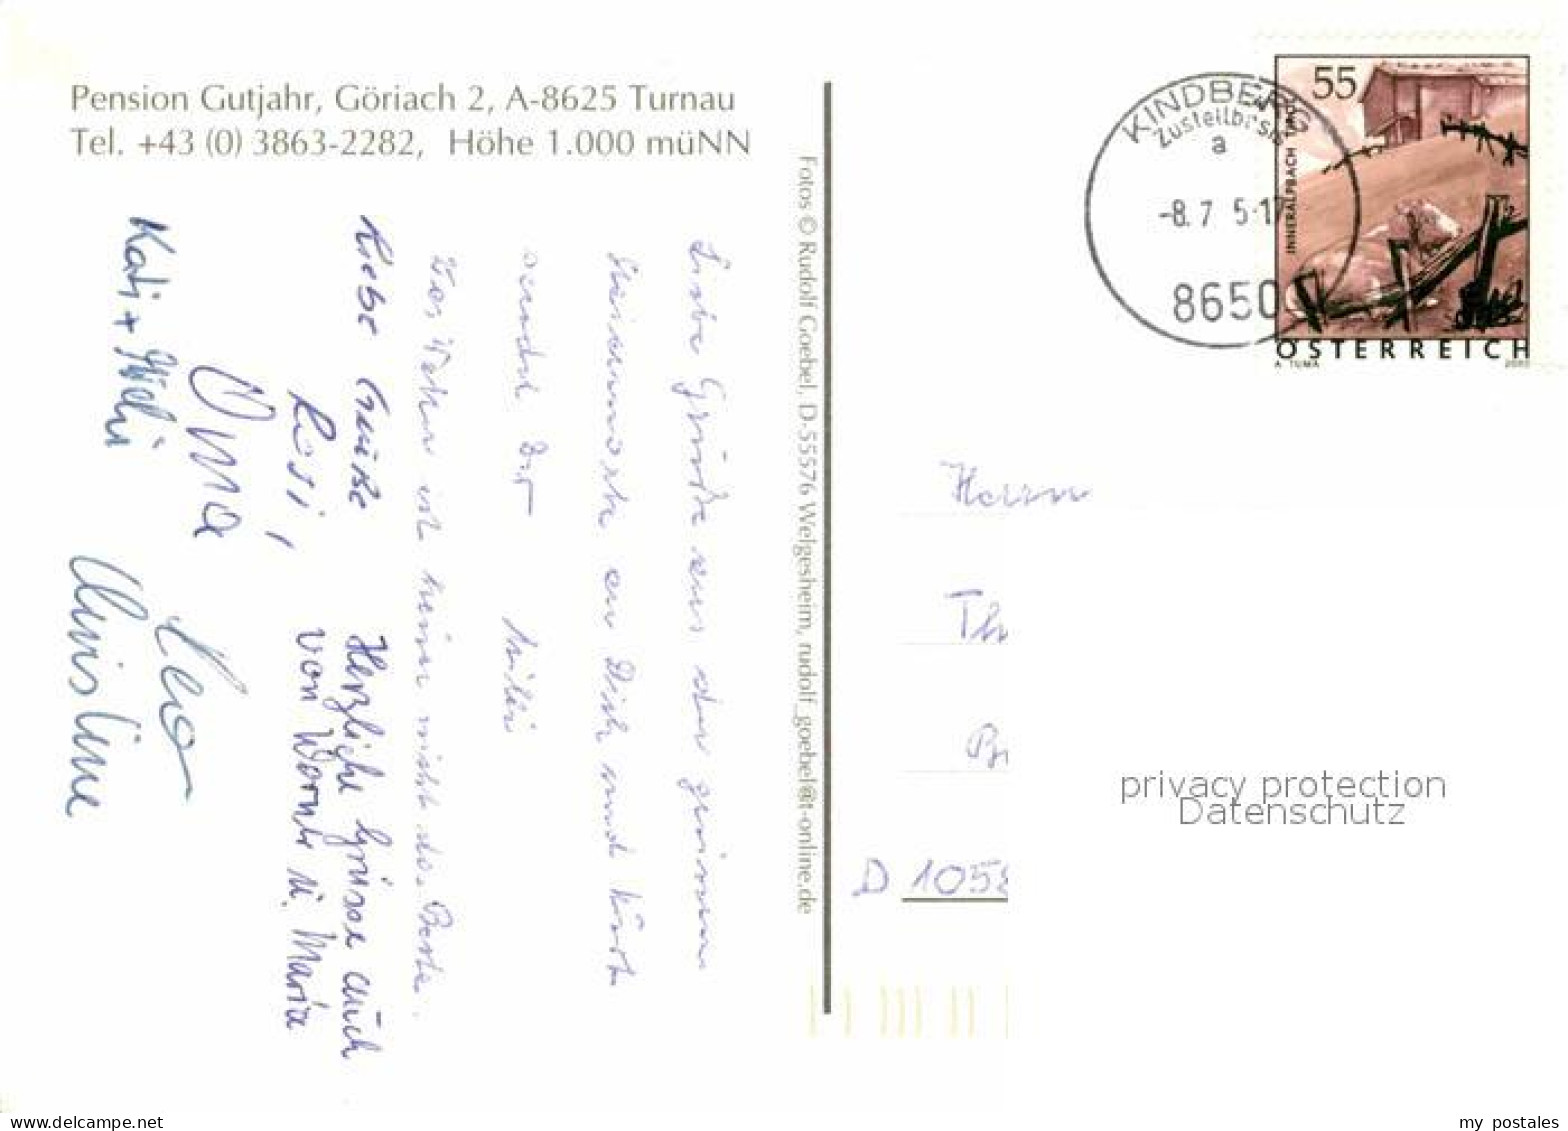 Pension Gutjahr, Göriach 2, A-8625 Turnau
Tel. +43 (0) 3863-2282, Höhe 1.000 müNN
Fotos © Rudolf Goebel, D-55576 Welgesheim, rudolf_goebel@t-online.de
Liebe Grüße aus der grünen
Steiermark an Dich und
sendet Dir
Das Wetter ist heuer nicht das Beste.
Liebe Grüße
Rosi,
Herzliche Grüsse auch
von Werner u. Maria
Oma
Leo
Kati +
Christine
KINDBERG
Zustellbasis
a
-8.7 5-17
8650
55
INNERALPBACH TIROL
ÖSTERREICH
A. TUMA
Herrn
Th
D 1058
privacy protection
Datenschutz
my postales